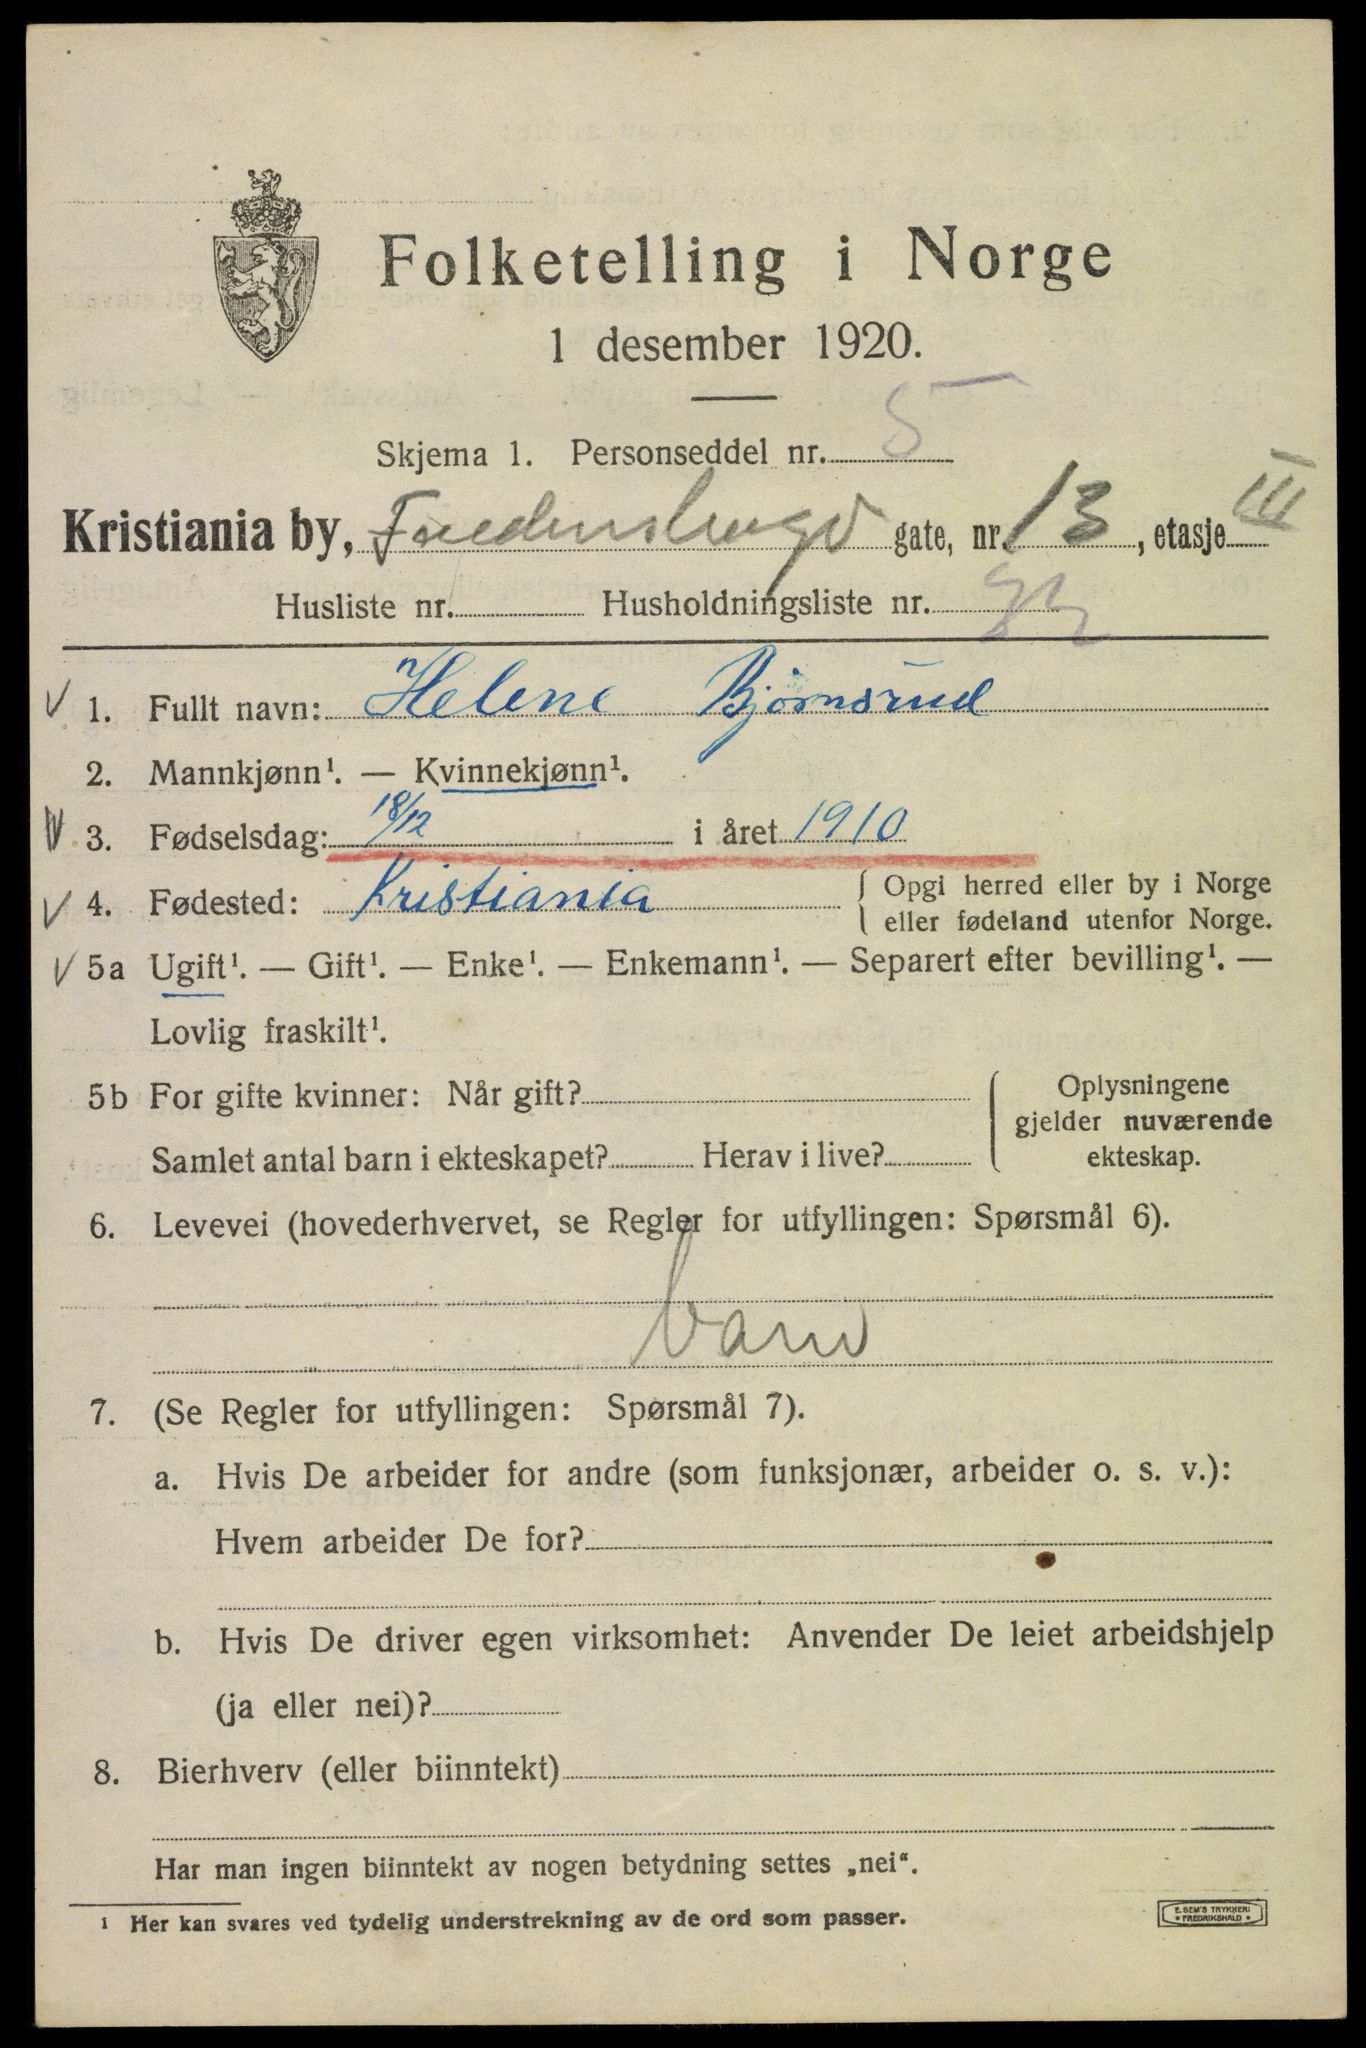 Folketelling i Norge
1 desember 1920.
Skjema 1. Personseddel nr. 5
Kristiania by, gate, nr. 13, etasje III
Husliste nr. Husholdningsliste nr.
1. Fullt navn: Helene Bjørnsrud
2. Mannkjønn¹. — Kvinnekjønn¹.
3. Fødselsdag: 18/12 i året 1910
4. Fødested: Kristiania { Opgi herred eller by i Norge
eller fødeland utenfor Norge.
5a Ugift¹. — Gift¹. — Enke¹. — Enkemann¹. — Separert efter bevilling¹. —
Lovlig fraskilt¹.
5b For gifte kvinner: Når gift? { Oplysningene
gjelder nuværende
Samlet antal barn i ekteskapet? Herav i live? ekteskap.
6. Levevei (hovederhvervet, se Regler for utfyllingen: Spørsmål 6).
barn
7. (Se Regler for utfyllingen: Spørsmål 7).
a. Hvis De arbeider for andre (som funksjonær, arbeider o. s. v.):
Hvem arbeider De for?
b. Hvis De driver egen virksomhet: Anvender De leiet arbeidshjelp
(ja eller nei)?
8. Bierhverv (eller biinntekt)
Har man ingen biinntekt av nogen betydning settes „nei“.
¹ Her kan svares ved tydelig understrekning av de ord som passer.
E. SEM'S TRYKKERI
• FREDRIKSHALD •